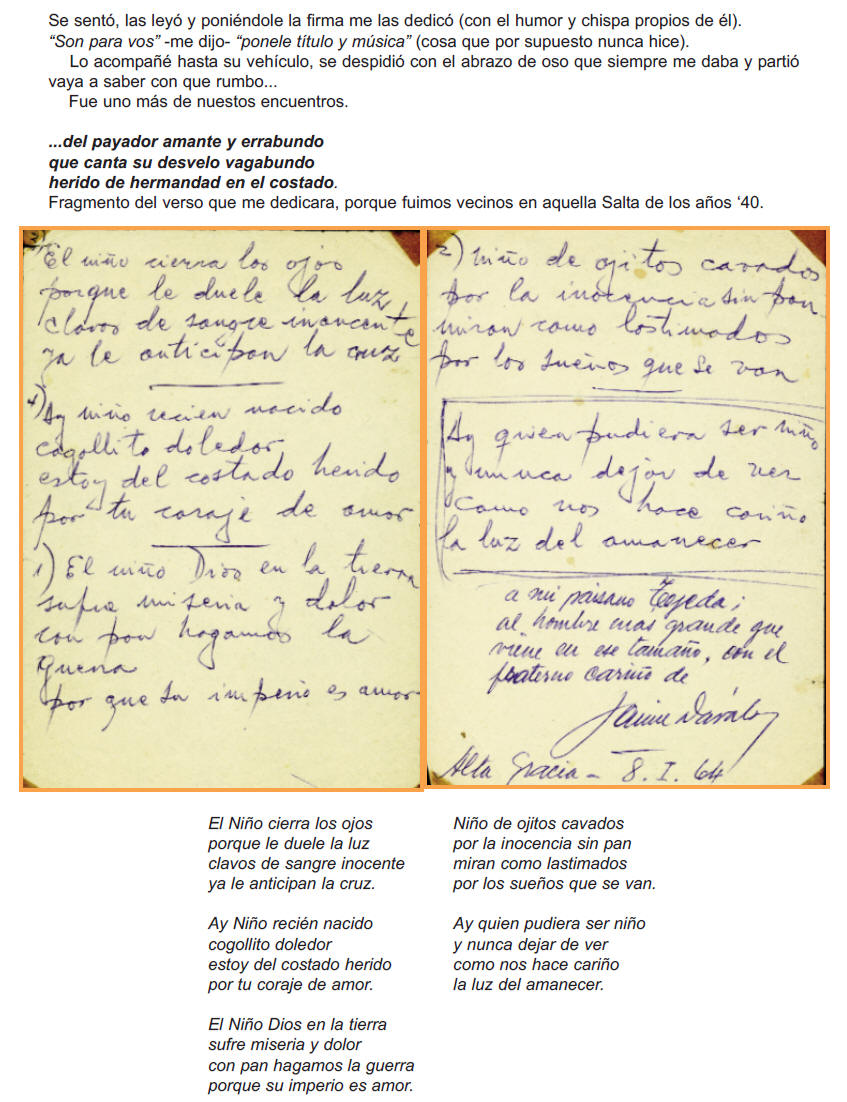 Se sentó, las leyó y poniéndole la firma me las dedicó (con el humor y chispa propios de él).
“Son para vos” -me dijo- “ponele título y música” (cosa que por supuesto nunca hice).
Lo acompañé hasta su vehículo, se despidió con el abrazo de oso que siempre me daba y partió
vaya a saber con que rumbo...
Fue uno más de nuestos encuentros.
...del payador amante y errabundo
que canta su desvelo vagabundo
herido de hermandad en el costado.
Fragmento del verso que me dedicara, porque fuimos vecinos en aquella Salta de los años ‘40.
3) El niño cierra los ojos
porque le duele la luz
clavos de sangre inoncente
ya le anticipan la cruz
4) Ay niño recien nacido
cogollito doledor
estoy del costado herido
por tu coraje de amor
1) El niño Dios en la tierra
sufre miseria y dolor
con pan hagamos la
guerra
por que su imperio es amor
2) niño de ojitos cavados
por la inocencia sin pan
miran como lastimados
por los sueños que se van
Ay quien pudiera ser niño
y nunca dejar de ver
como nos hace cariño
la luz del amanecer
a mi paisano Tejeda;
al hombre mas grande que
viene en ese tamaño, con el
fraterno cariño de
Jaime Dávalos
Alta Gracia - 8. I. 64
El Niño cierra los ojos
porque le duele la luz
clavos de sangre inocente
ya le anticipan la cruz.
Ay Niño recién nacido
cogollito doledor
estoy del costado herido
por tu coraje de amor.
El Niño Dios en la tierra
sufre miseria y dolor
con pan hagamos la guerra
porque su imperio es amor.
Niño de ojitos cavados
por la inocencia sin pan
miran como lastimados
por los sueños que se van.
Ay quien pudiera ser niño
y nunca dejar de ver
como nos hace cariño
la luz del amanecer.